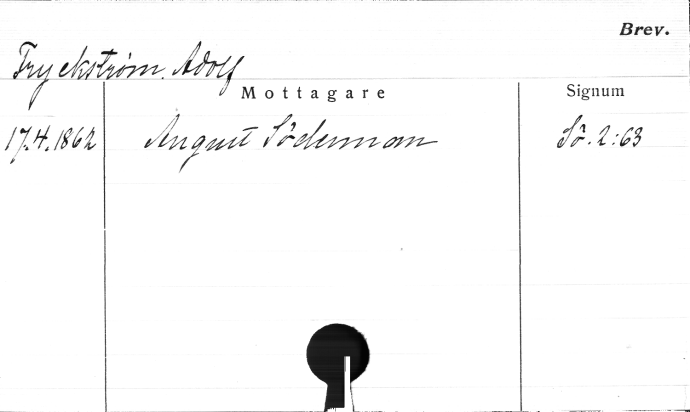 Brev.
Fryckström. Adolf
Mottagare Signum
17.4.1862 August Söderman Sö. 2:63